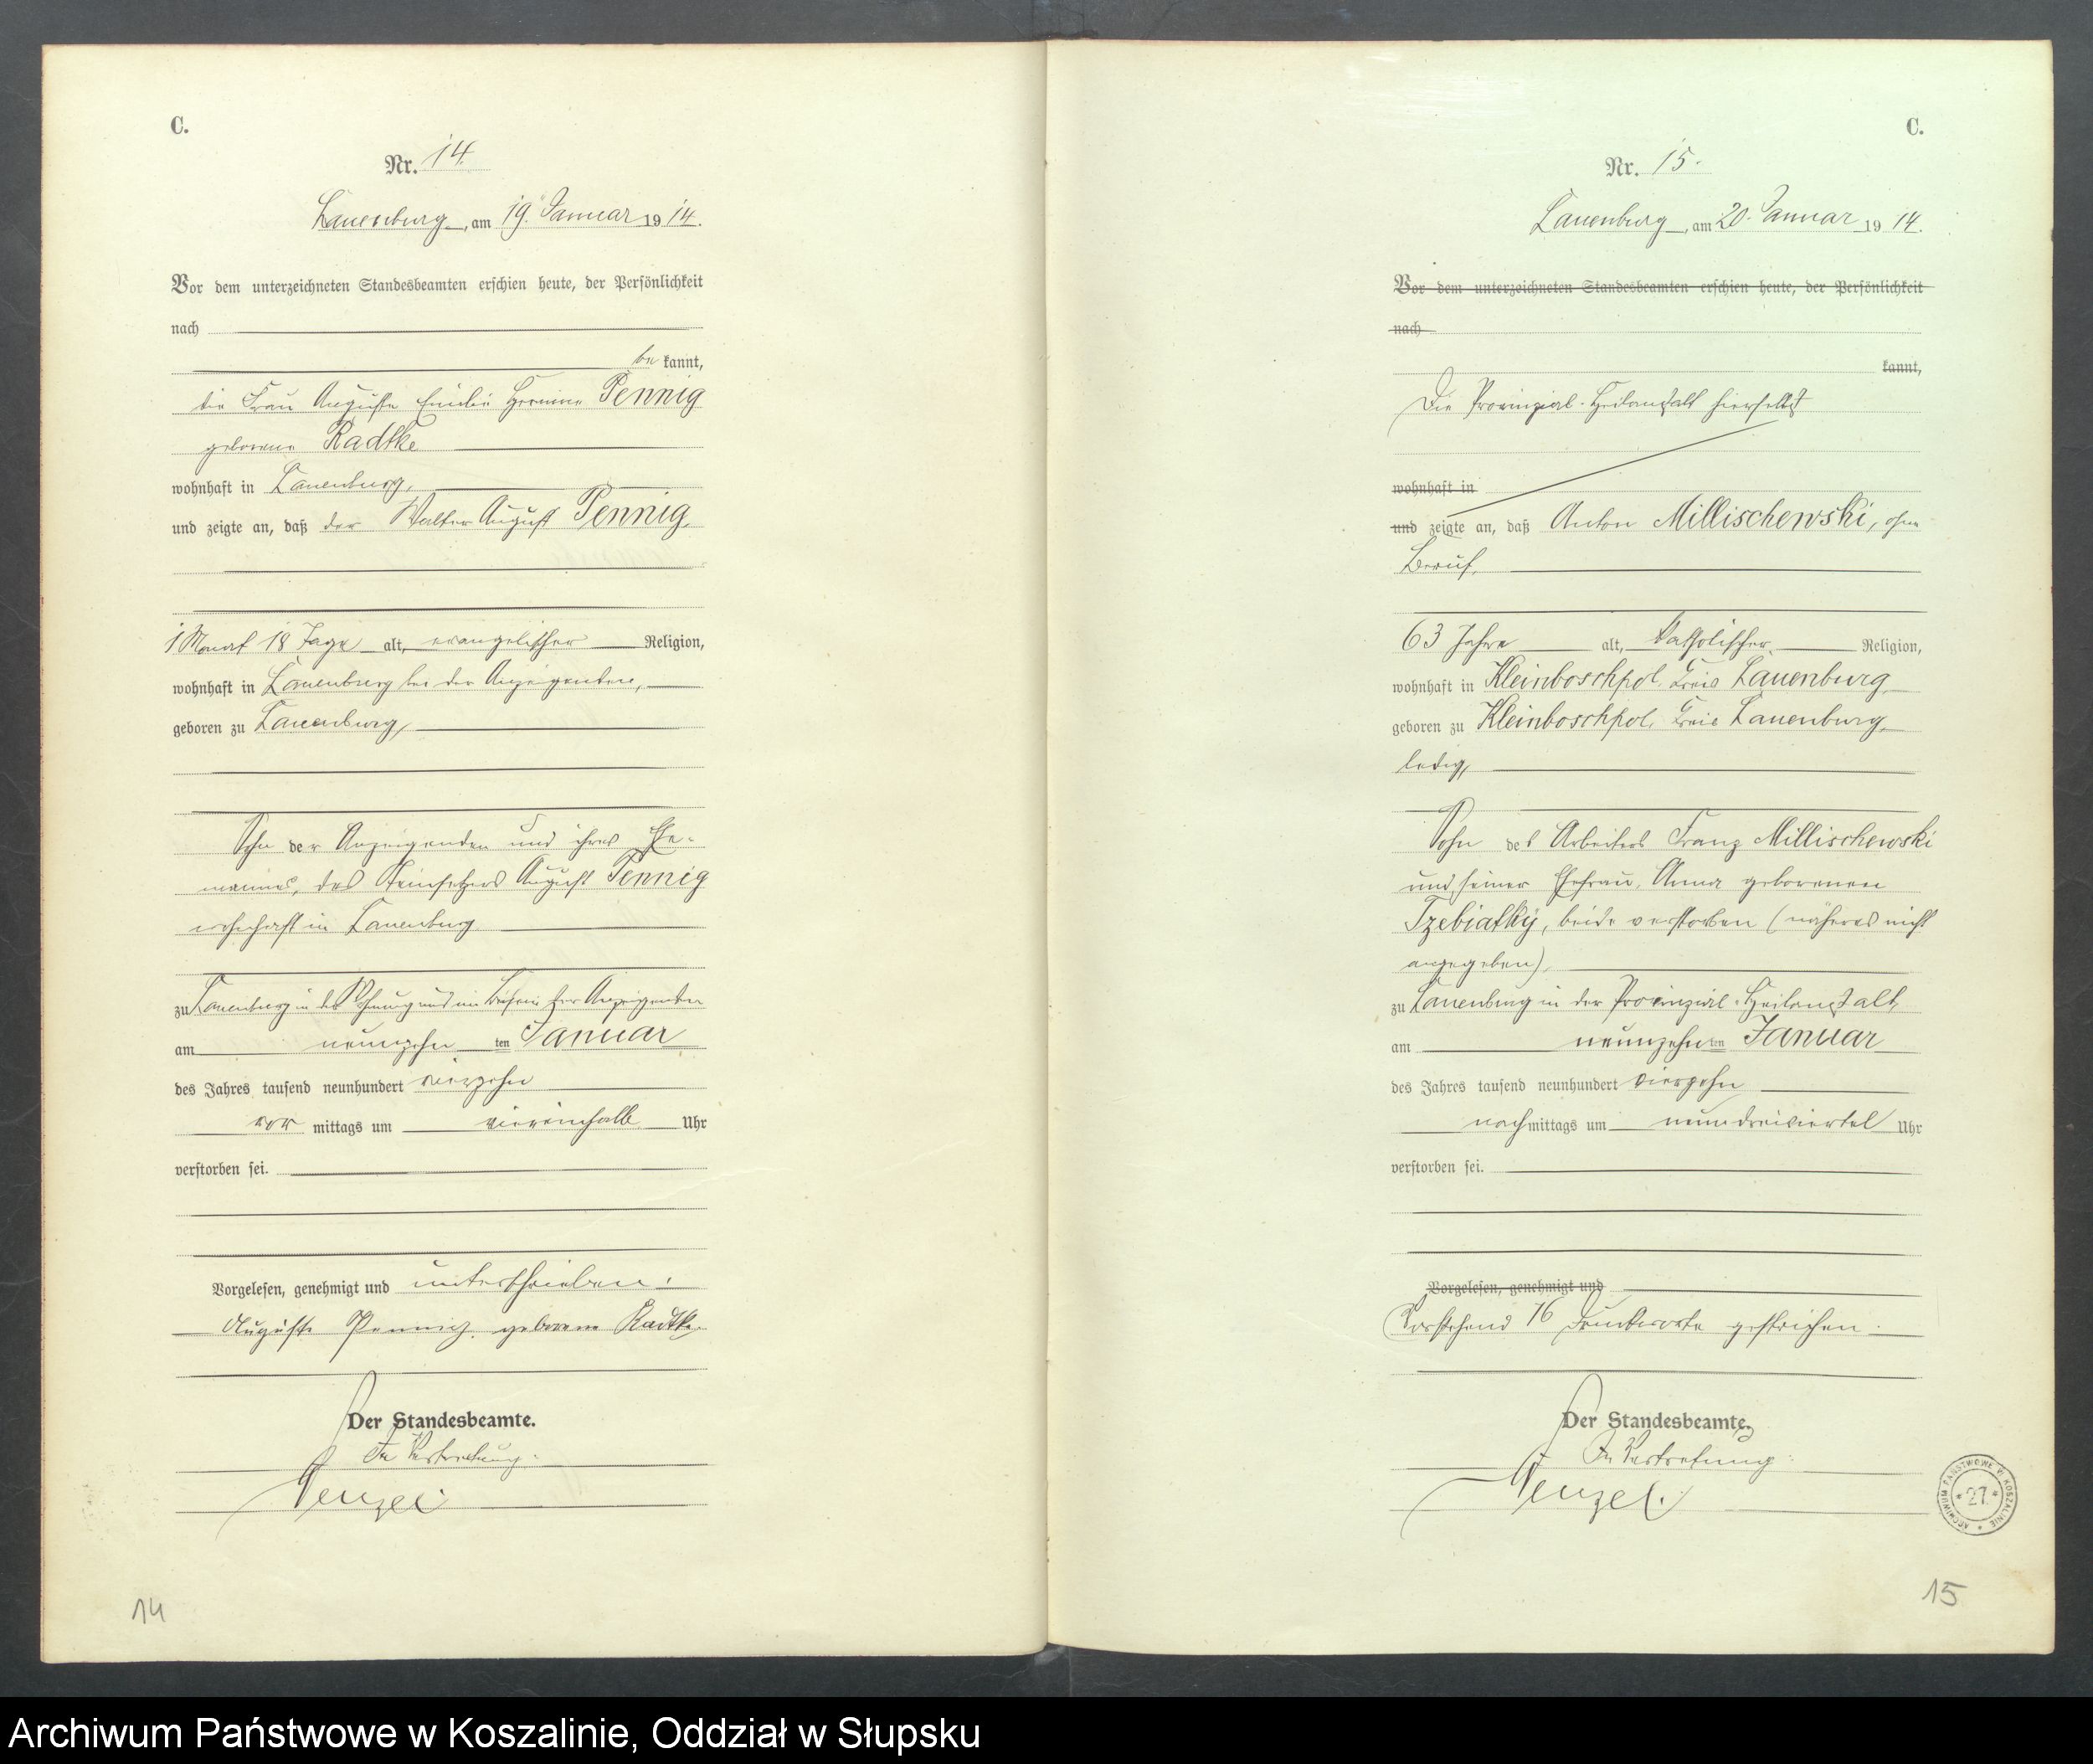 C.
Nr. 14.
Lauenburg, am 19. Januar 1914.
Vor dem unterzeichneten Standesbeamten erschien heute, der Persönlichkeit
nach
be kannt,
die Frau Auguste Emilie Hermine Pennig
geborene Radtke
wohnhaft in Lauenburg,
und zeigte an, daß der Walter August Pennig,
1 Monat 18 Tage alt, evangelischer Religion,
wohnhaft in Lauenburg bei der Anzeigenden,
geboren zu Lauenburg,
Sohn der Anzeigenden und ihres Ehe-
mannes, des Steinsetzers August Pennig
wohnhaft in Lauenburg
zu Lauenburg in der Wohnung und im Beisein der Anzeigenden
am neunzehn ten Januar
des Jahres tausend neunhundert vierzehn
vor mittags um viereinhalb Uhr
verstorben sei.
Vorgelesen, genehmigt und unterschrieben.
Auguste Pennig geborene Radtke
Der Standesbeamte.
In Vertretung:
14
C.
Nr. 15.
Lauenburg, am 20. Januar 1914.
Vor dem unterzeichneten Standesbeamten erschien heute, der Persönlichkeit
nach
kannt,
Die Provinzial-Heilanstalt hierselbst
wohnhaft in
und zeigte an, daß Anton Millischewski, ohne
Beruf,
63 Jahre alt, katholischer Religion,
wohnhaft in Kleinboschpol, Kreis Lauenburg
geboren zu Kleinboschpol, Kreis Lauenburg,
ledig,
Sohn des Arbeiters Franz Millischewski
und seiner Ehefrau, Anna geborenen
Tzebiatky, beide verstorben (näheres nicht
angegeben),
zu Lauenburg in der Provinzial-Heilanstalt,
am neunzehn ten Januar
des Jahres tausend neunhundert vierzehn
nach mittags um neundreiviertel Uhr
verstorben sei.
Vorgelesen, genehmigt und
Vorstehend 16 Druckworte gestrichen.
Der Standesbeamte.
In Vertretung:
ARCHIWUM PAŃSTWOWE W KOSZALINIE
* 27 *
15
Archiwum Państwowe w Koszalinie, Oddział w Słupsku